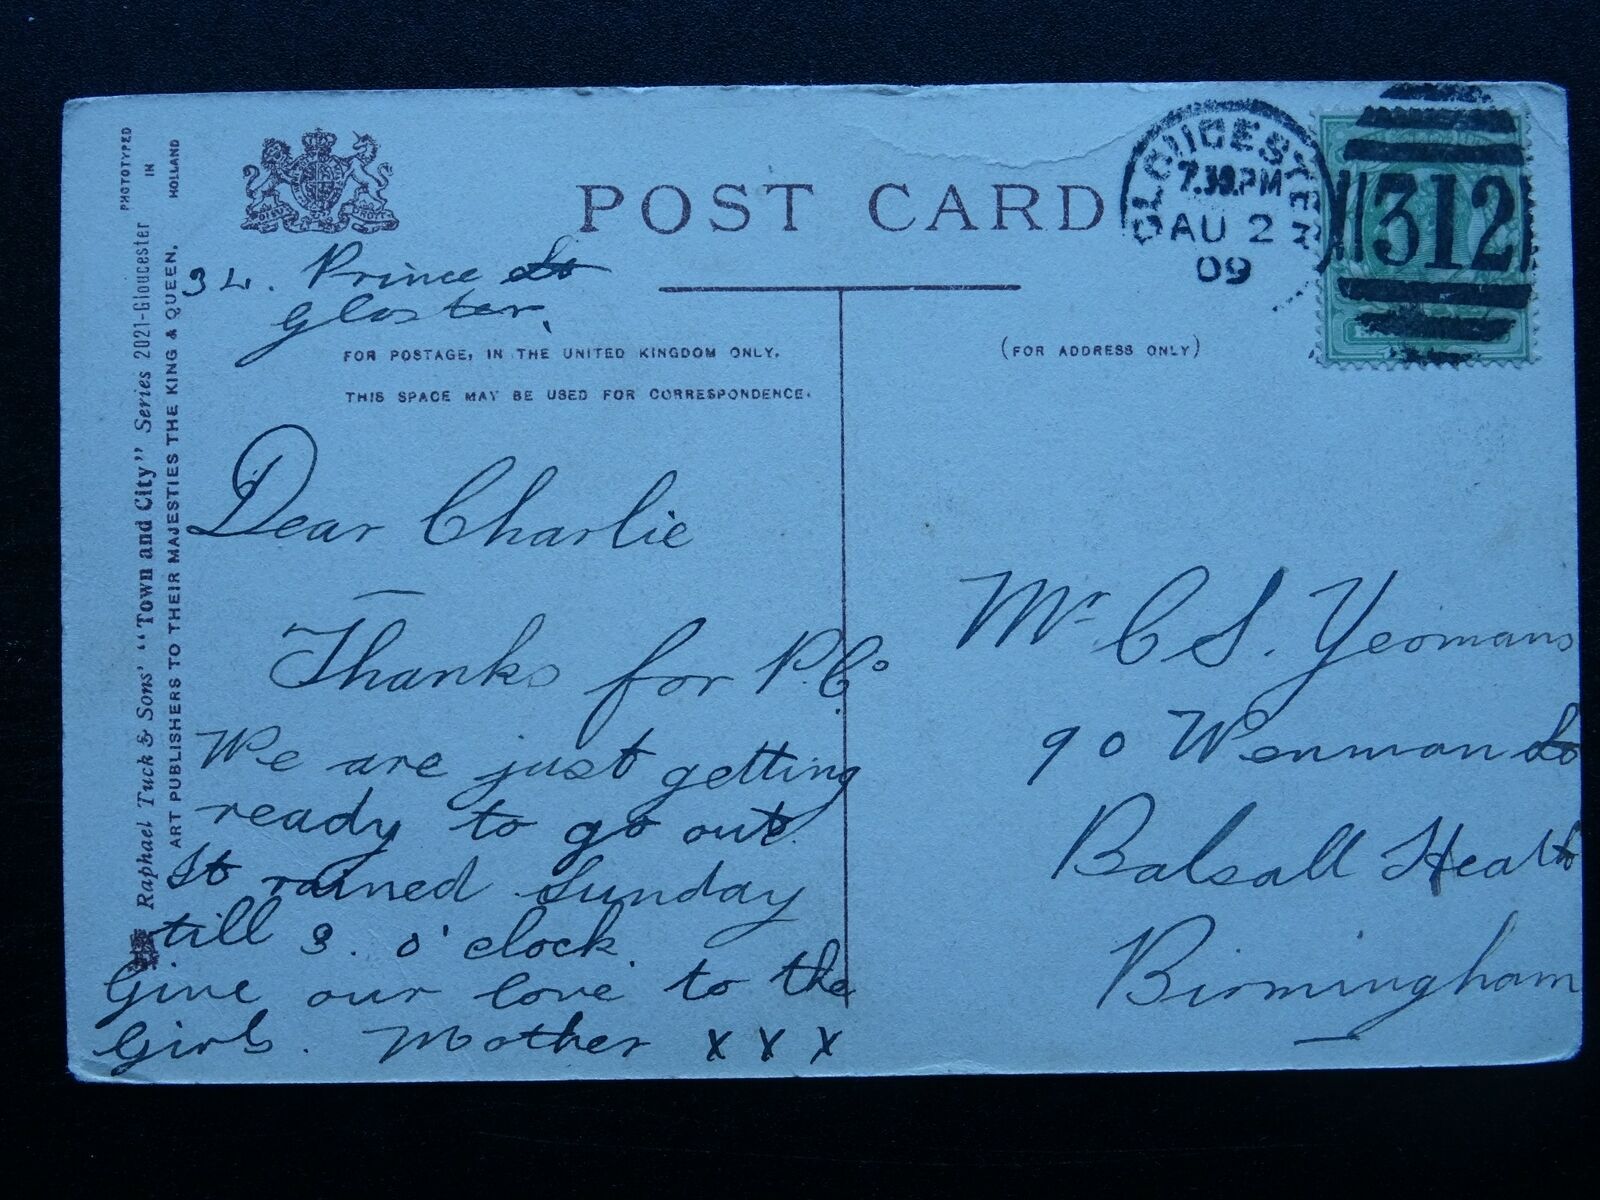 PHOTOTYPED IN HOLLAND
Raphael Tuck & Sons' "Town and City" Series 2021-Gloucester
ART PUBLISHERS TO THEIR MAJESTIES THE KING & QUEEN.
POST CARD
GLOUCESTER
7.30.PM
AU 2
09
312
34. Prince St
Gloster.
FOR POSTAGE, IN THE UNITED KINGDOM ONLY,
THIS SPACE MAY BE USED FOR CORRESPONDENCE.
(FOR ADDRESS ONLY)
Dear Charlie
Thanks for P.C.
We are just getting
ready to go out.
It rained Sunday
till 3. o'clock
Give our love to the
Girls. Mother x x x
Mr C S. Yeomans
90 Wenman St
Balsall Heath
Birmingham